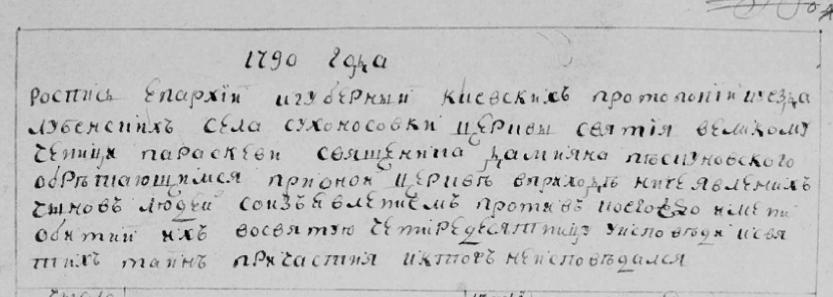 1790 Года
Роспись Епархіи игуберныи Киевскихъ протопопіи иуезда
лубенскихъ села сухоносовки церквы святія великому
ченицы параскеви священника Дамияна пѣсчуновского
обрѣтающимся прионой церквѣ вприходѣ нижеявленихъ
чыновъ людей соизъявлениемъ противъ коегождо имени
обытии ихъ восвятую четіредесятницу уисповѣди исвя
тихъ таинъ причастия иктожъ неисповѣдался